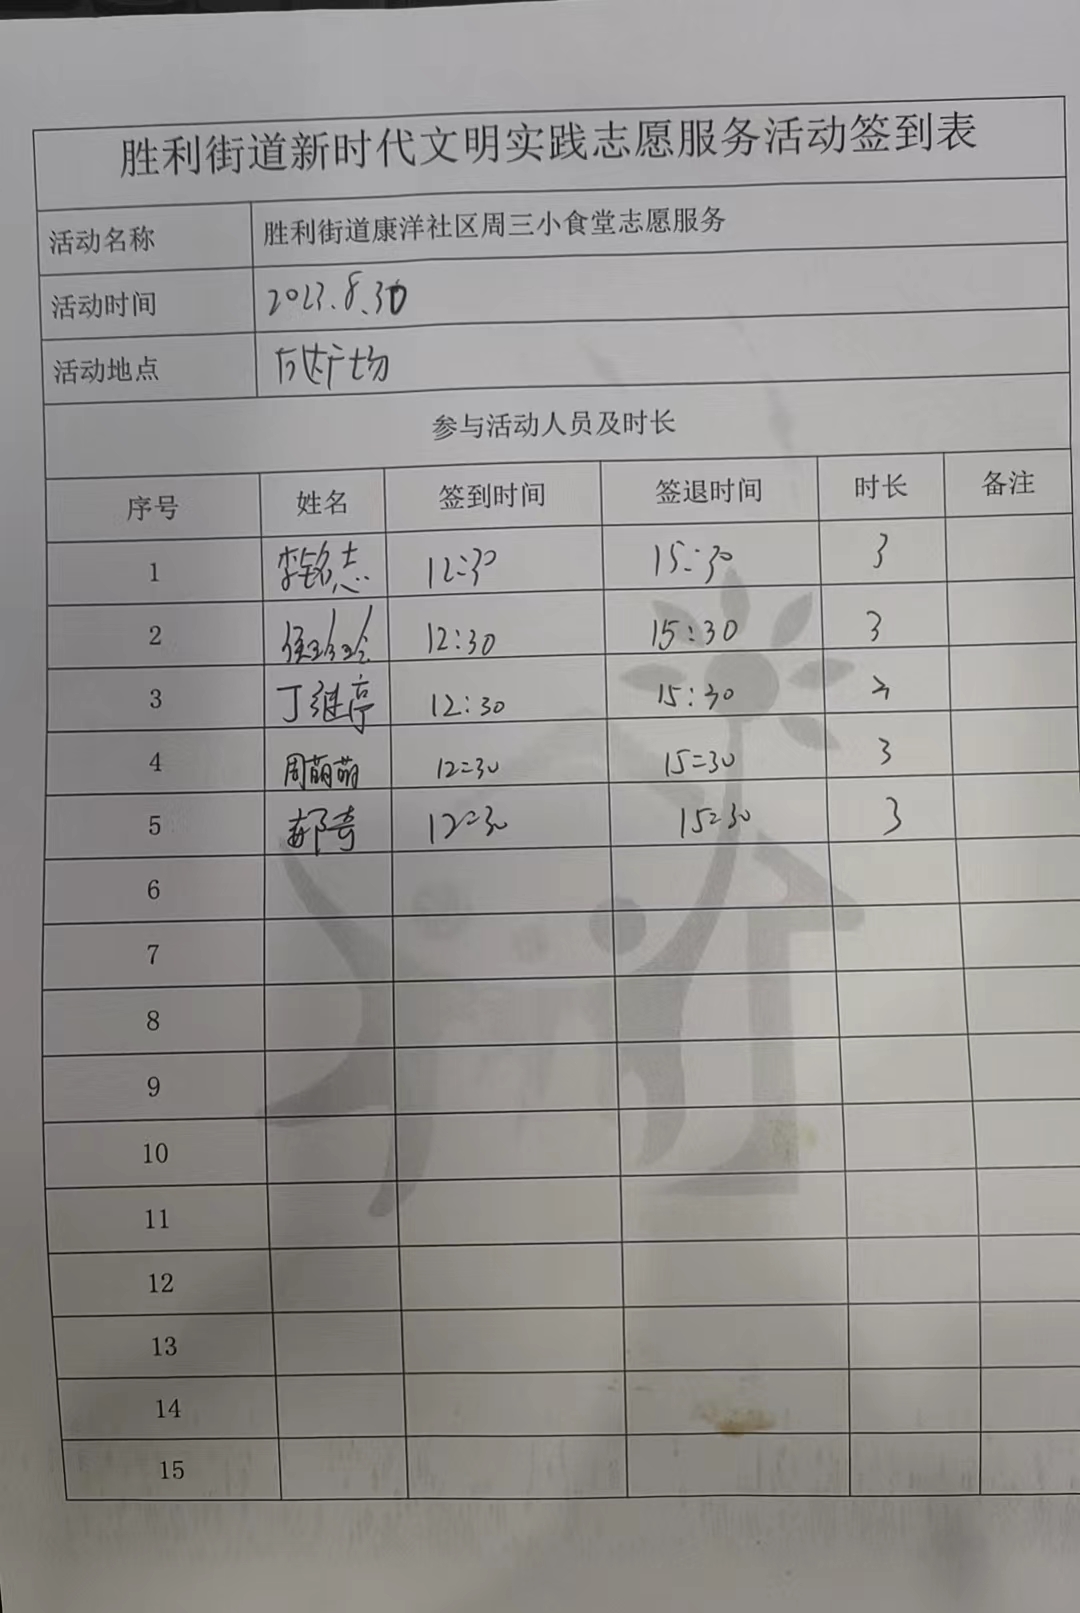 胜利街道新时代文明实践志愿服务活动签到表
活动名称 胜利街道康洋社区周三小食堂志愿服务
活动时间 2023.8.30
活动地点 万达广场
参与活动人员及时长
序号 姓名 签到时间 签退时间 时长 备注
1 李铭志 12:30 15:30 3
2 12:30 15:30 3
3 丁继亭 12:30 15:30 3
4 周萌萌 12:30 15:30 3
5 郝奇 12:30 15:30 3
6
7
8
9
10
11
12
13
14
15